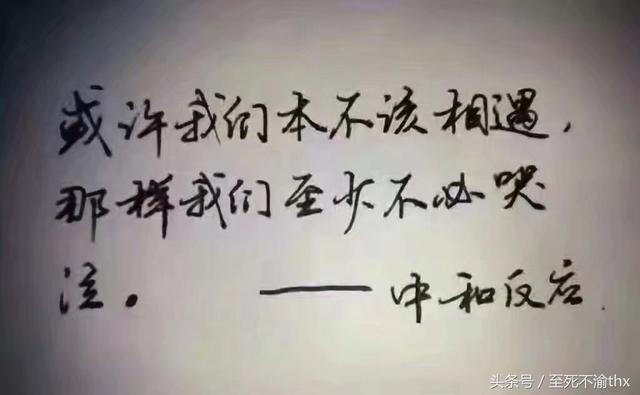 或许我们本不该相遇，
那样我们至少不必哭
泣。 ——中和反应.
头条号 / 至死不渝thx